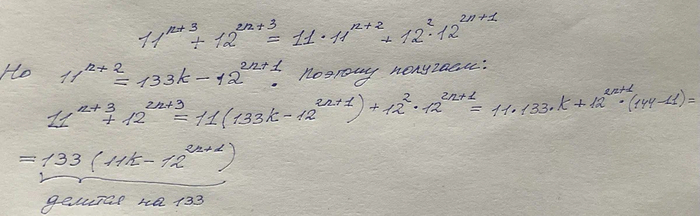 11^{n+3} + 12^{2n+3} = 11 · 11^{n+2} + 12^2 · 12^{2n+1}
Но 11^{n+2} = 133k - 12^{2n+1}. Поэтому получаем:
11^{n+3} + 12^{2n+3} = 11(133k - 12^{2n+1}) + 12^2 · 12^{2n+1} = 11·133·k + 12^{2n+1} · (144-11) =
= 133 (11k - 12^{2n+1})
делится на 133